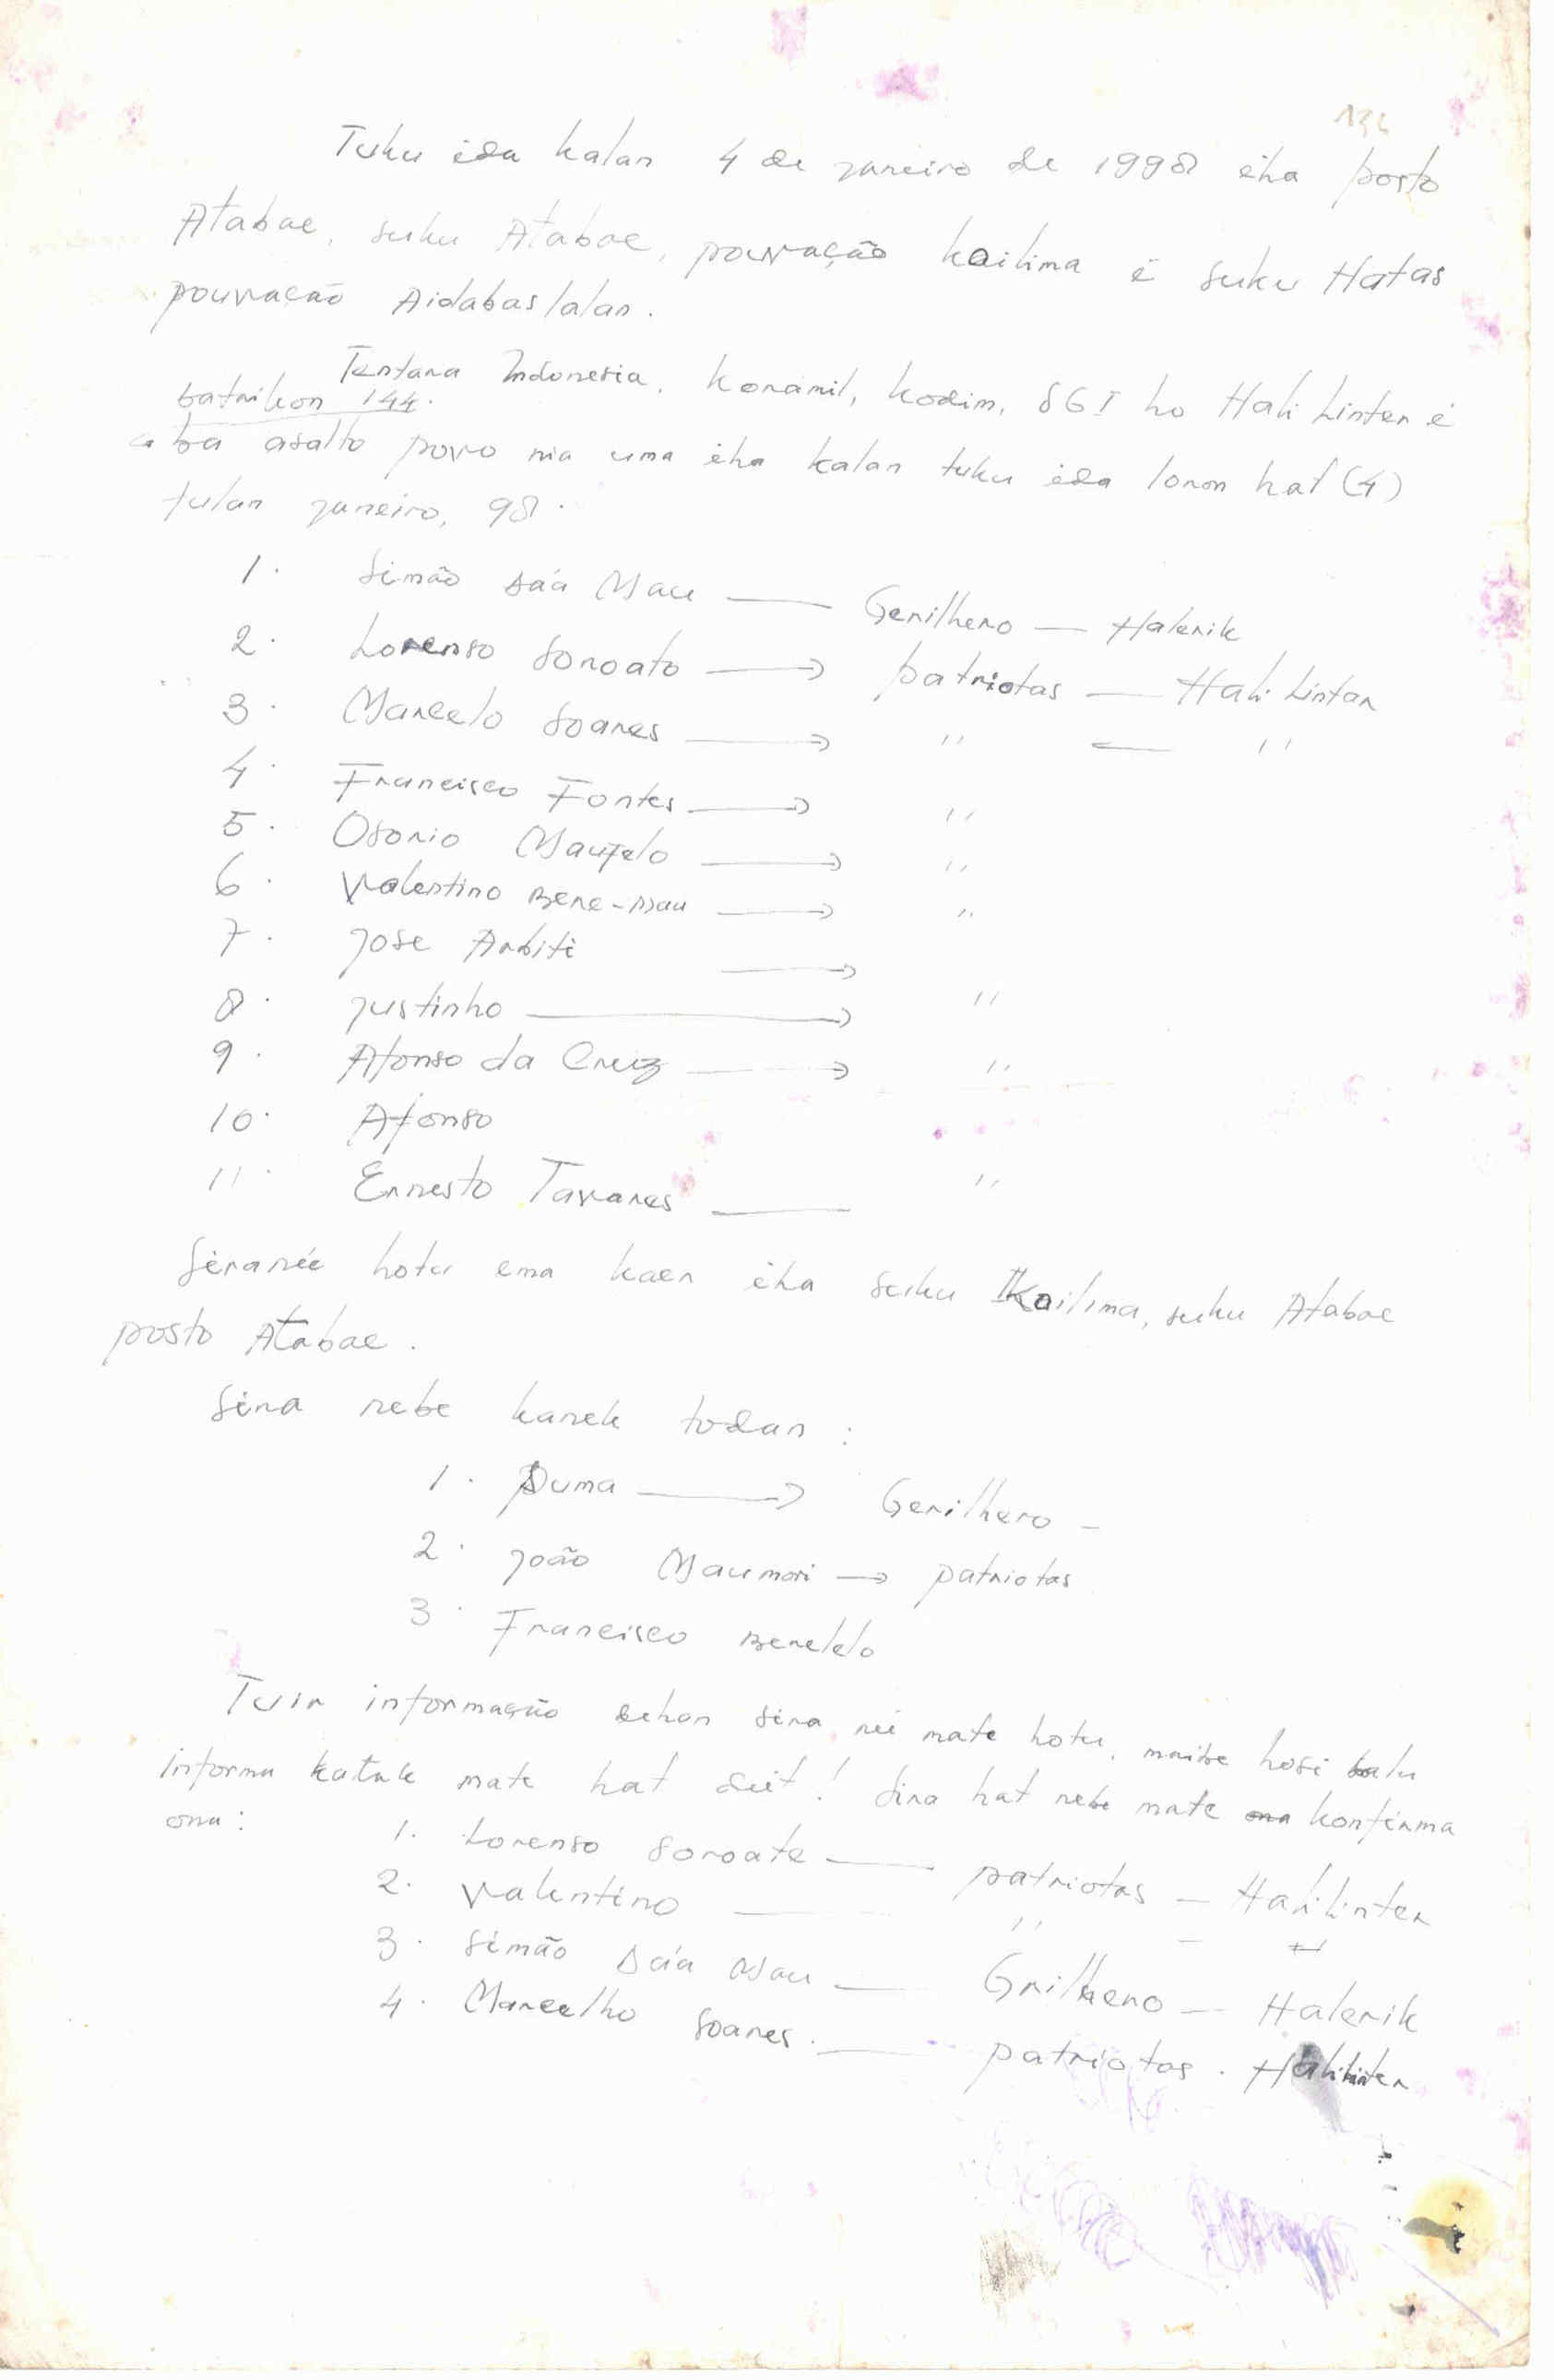 136
Tuku ida kalan 4 de janeiro de 1998 iha posto
Atabae, suku Atabae, pouvação kailima é suku Hatas
pouvação Aidabaslalan.
Tentara Indonesia, koramil, kodim, SGI ho Hali Linter é
batrikon 144.
ba asalto povo nia uma iha kalan tuku ida loron hat (4)
fulan janeiro, 98.
1. Simão Dáa Mau — Gerilhero — Halerik
2. Lorenso Soroato → patriotas — Hali Lintar
3. Marcelo Soares → " — "
4. Francisco Fontes → "
5. Osorio Maufelo → "
6. Valentino Bere-Mau → "
7. Jose Arbiti →
8. Justinho → "
9. Afonso da Cruz → "
10. Afonso
11. Ernesto Tavares — "
Siranée hotu ema kaer iha suku Kailima, suku Atabae
posto Atabae.
Sira nebe kanek todan :
1. Duma → Gerilhero -
2. João Maumori → patriotas
3. Francisco Berelelo
Tuir informação dehan sira né mate hotu, maibe hosi balu
informa katak mate hat deit! Sira hat nebe mate konfirma
ona:
1. Lorenso Soroate — patriotas — Halilinter
2. Valentino — " -
3. Simão Dáa Mau — Grilhero — Halerik
4. Marcelho Soares. — patriotas. Halilinter